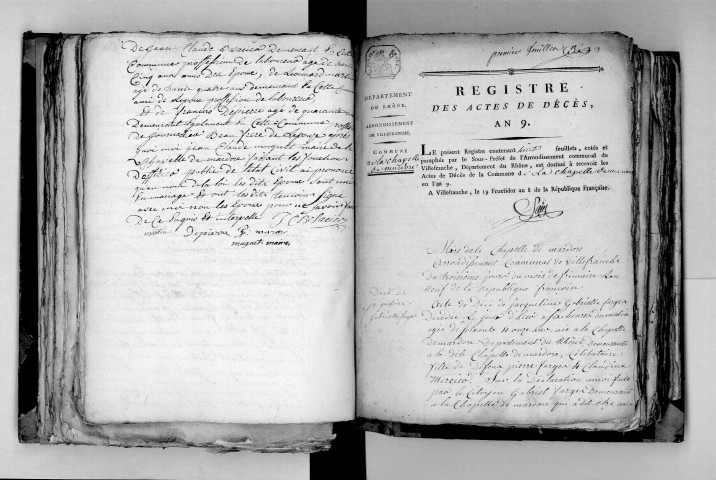 De jean Claude
Commune profession de laboureur age de trente
Cinq ans ami des epoux, de Leonnard
age de trante quatre ans demeurant a Cette Commune
ami de Lepoux profession de laboureur
et de francois Depierre age de quarante
Demeurant egalement a Cette Commune
de journalier Beau frere de Lepouse apres
quoi moi jean Claude maire de la
Chapelle de mardore faisant les fonction
D'officier public de l'etat Civil ai prononcé
qu'au nom de la loi les dits Epoux sont unie
En mariage et ont les dits temoins signe
avec moi non les Epoux pour ne savoir
De ce Enquis et interpelle
Depierre
maire
premier feuillet
REGISTRE
DES ACTES DE DÉCÈS,
AN 9.
DÉPARTEMENT
DU RHÔNE.
ARRONDISSEMENT
DE VILLEFRANCHE.
COMMUNE
de la chapelle
de mardore
LE présent Registre contenant huit feuillets, cotés et
paraphés par le Sous-Préfet de l'Arrondissement communal de
Villefranche, Département du Rhône, est destiné à recevoir les
Actes de Décès de la Commune de La chapelle de mardore
en l'an 9.
A Villefranche, le 19 Fructidor an 8 de la République Française.
Mairie de la Chapelle de mardore
arrondissement Communal de villefranche
Du troisieme jour du mois de frimaire l'an
neuf de la republique francoise
Decè de
jacqueline
Gabrielle farges
Acte de Décè de jacqueline Gabrielle farges
Décédée le jour d'hier a six heures du matin
agée de soixante et onze ans née a la Chapelle
de mardore Departement du Rhône demeurante
a la dite Chapelle de mardore, Célibataire
fille de Defun pierre farges et Claudine
Mercier. Sur la Declaration a moi faite
par le Citoyen Gabriel farges Demeurant
a la Chapelle de mardore qui a dit etre